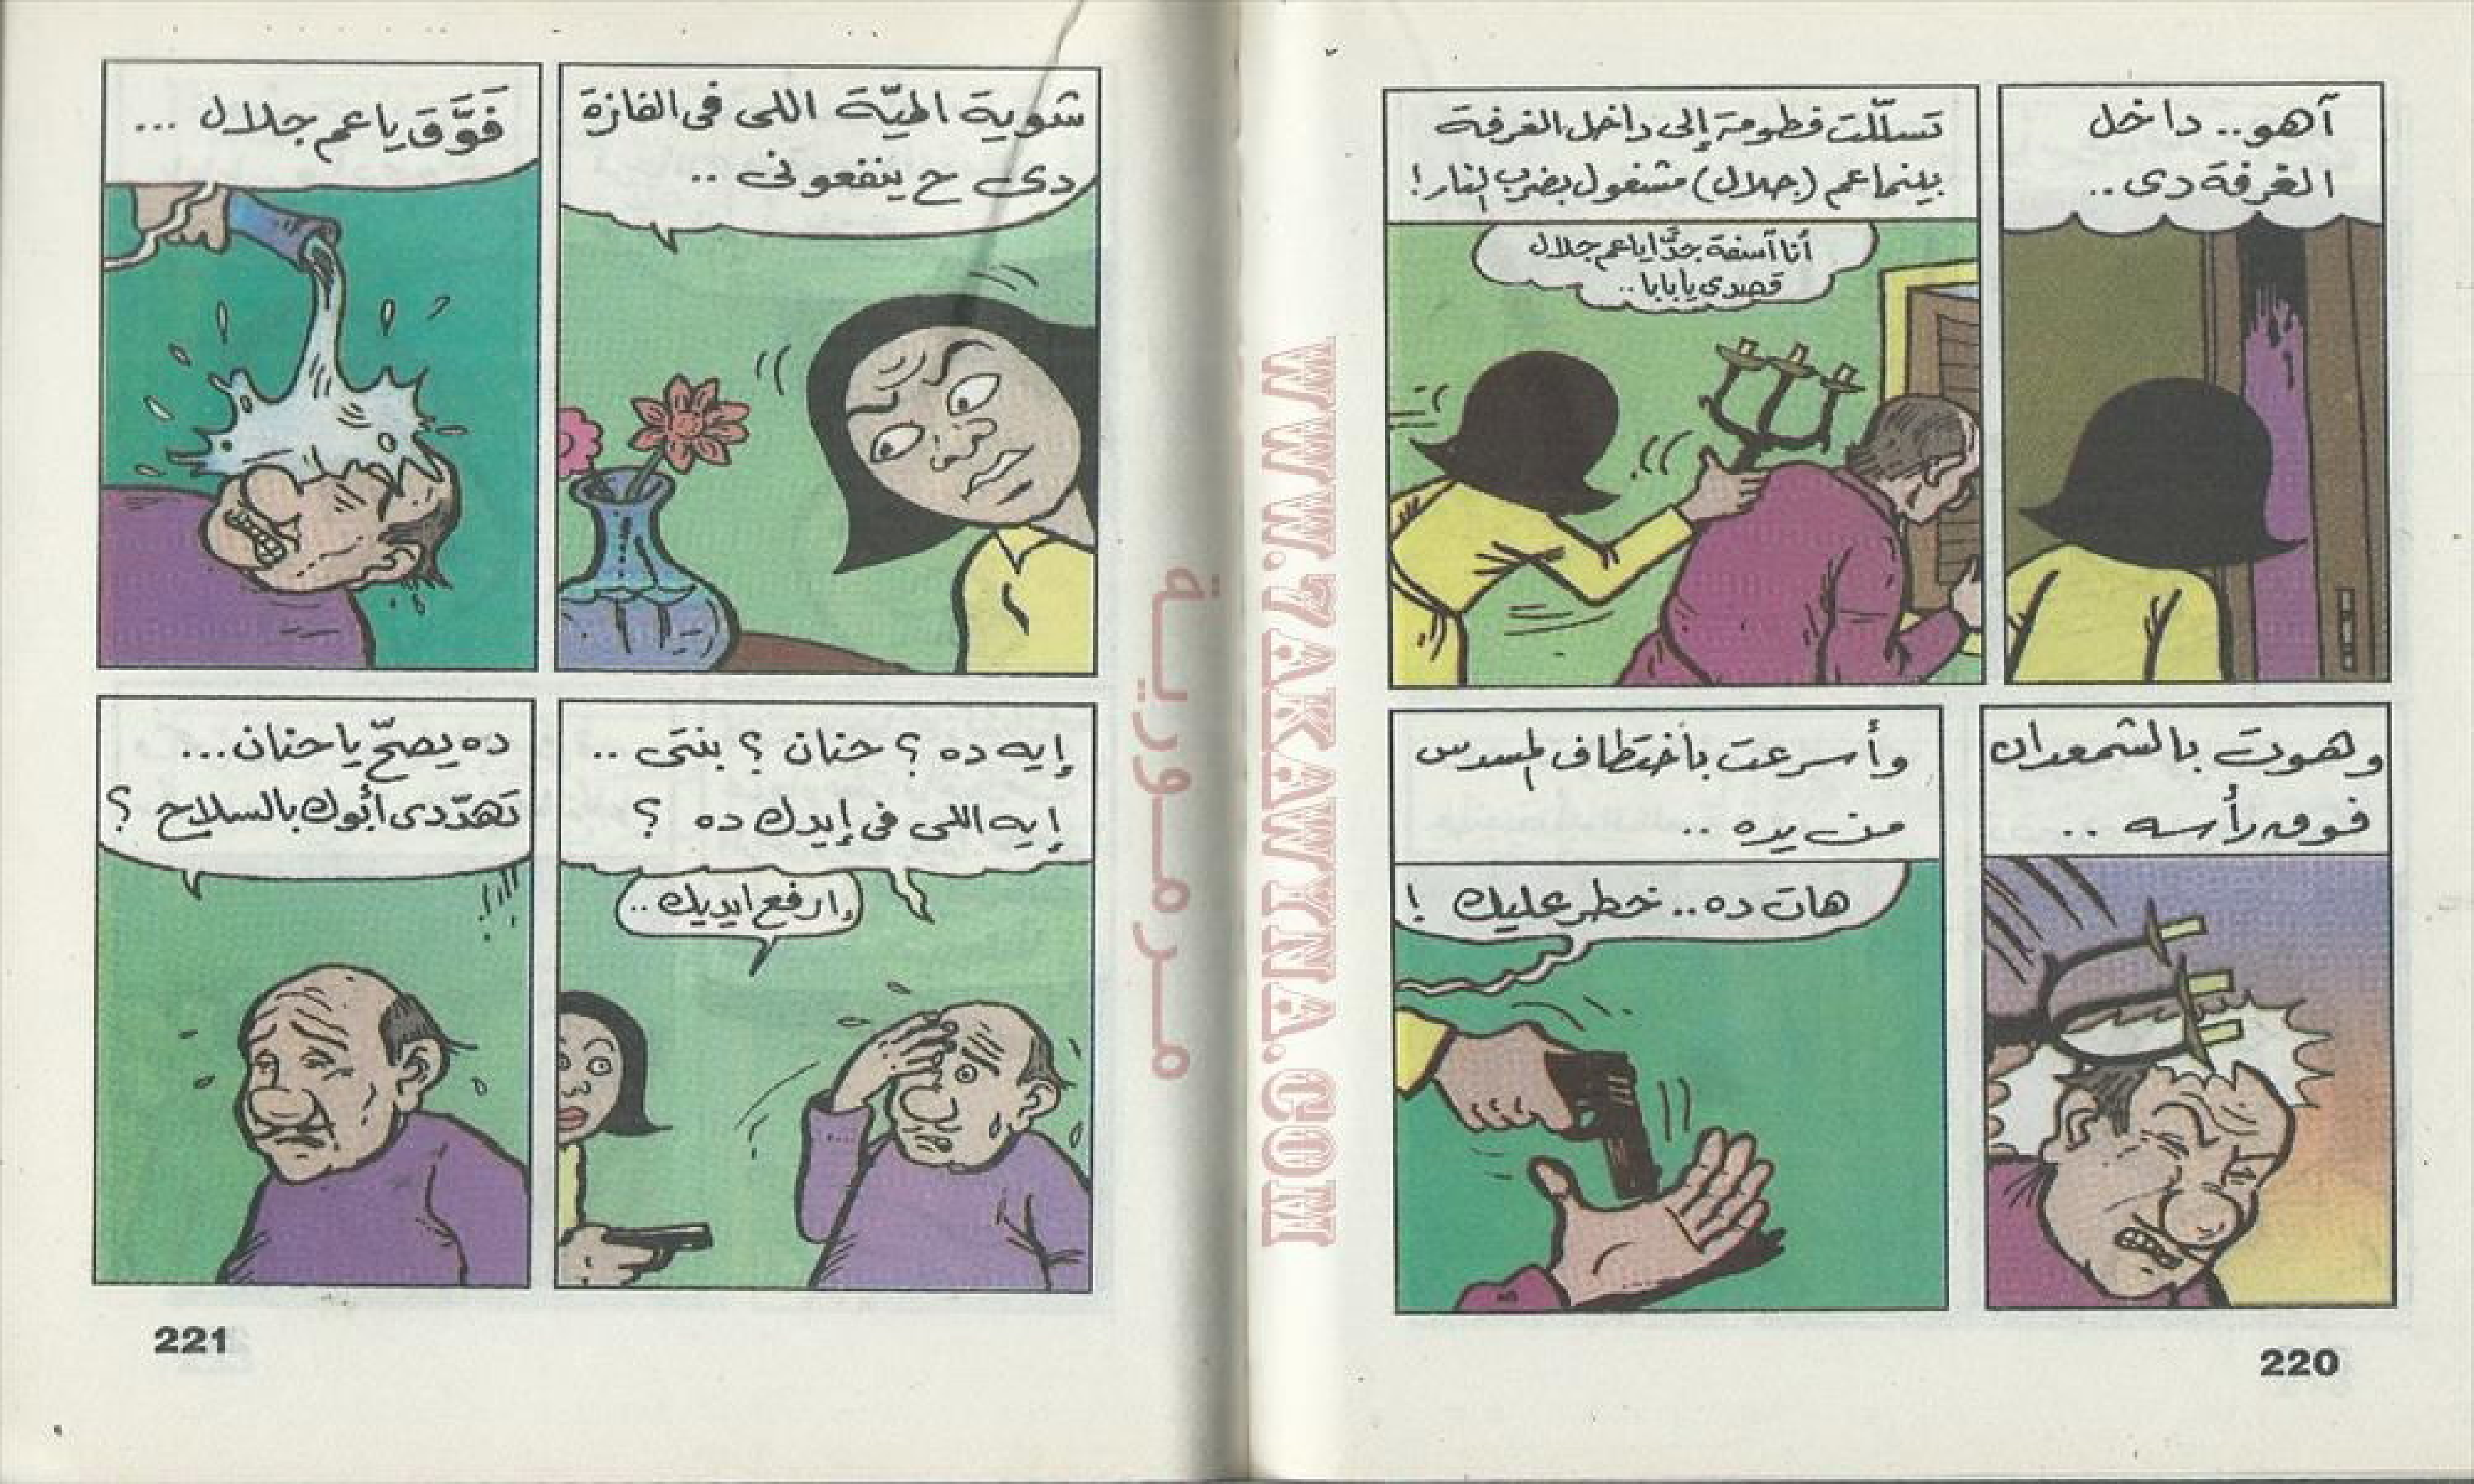 آهو.. داخل
الغرفة دى..
تسلّلت فطومة إلى داخل الغرفة
بينما عم (جلال) مشغول بضرب النار!
أنا آسفة جدًّا ياعم جلال
قصدى يا بابا..
وهوت بالشمعدان
فوق رأسه ..
وأسرعت بأختطاف المسدس
من يده ..
هات ده.. خطر عليك !
220
شوية الميّة اللى فى الفازة
دى ح ينفعونى ..
فَوَّق ياعم جلال ...
إيه ده ؟ حنان ؟ بنتى ..
إيه اللى فى إيدك ده ؟
إرفع ايديك ..
ده يصحّ يا حنان...
تهدّدى أبوك بالسلاح ؟
221
WWW.7AKAWYNA.COM
مرمورية